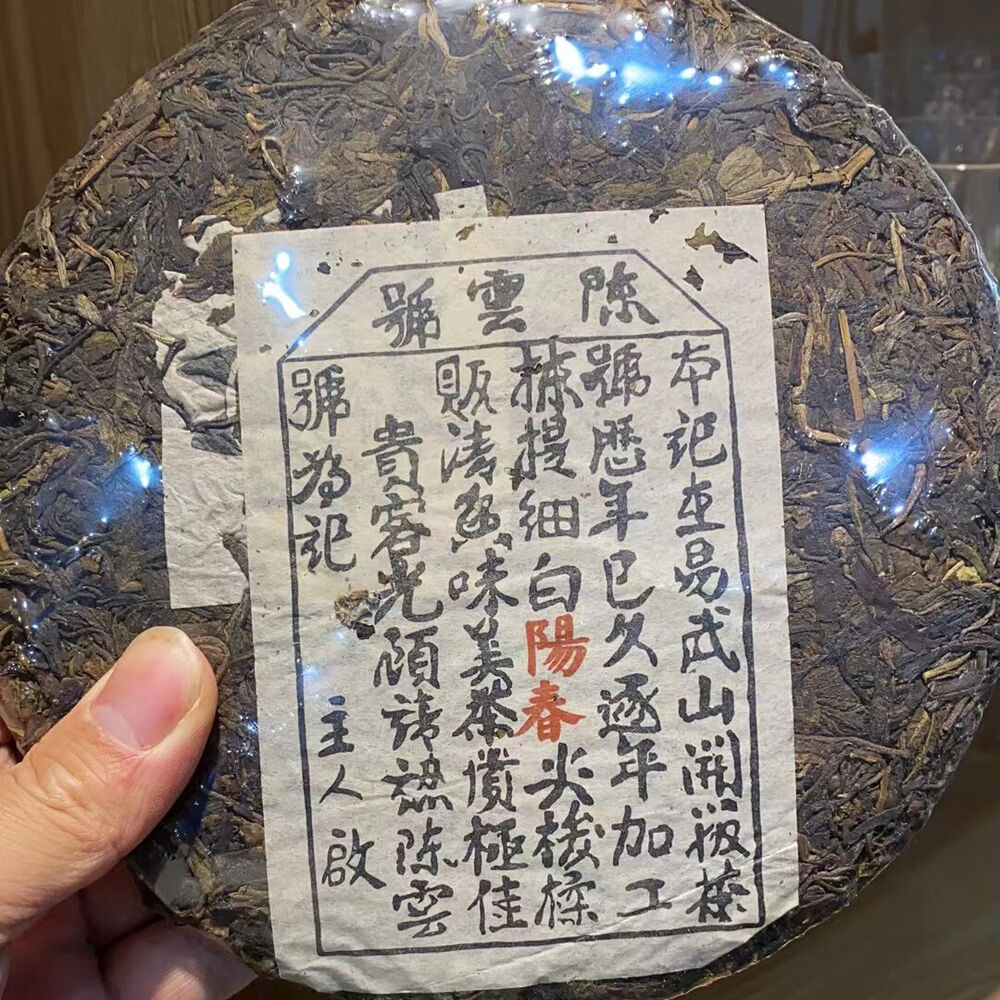 陈雲號
本記在易武山開茶
號歷年已久逐年加工
揀提細白陽春尖
販清味美茶價極佳
貴客光顧請認陈雲
號為記 主人啟